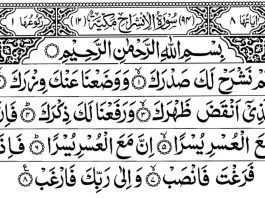 اٰیَاتُهَا ٨ (٩٤) سُوْرَةُ الْاِنْشِرَاحِ مَكِّیَّةٌ (١٢) رُكُوْعُهَا ١
بِسْمِ اللّٰهِ الرَّحْمٰنِ الرَّحِیْمِ
نَشْرَحْ لَكَ صَدْرَكَ ١ وَوَضَعْنَا عَنْكَ وِزْرَكَ ٢
الَّذِیْۤ اَنْقَضَ ظَهْرَكَ ٣ وَرَفَعْنَا لَكَ ذِكْرَكَ ٤
مَعَ الْعُسْرِ یُسْرًا ٥ اِنَّ مَعَ الْعُسْرِ یُسْرًا ٦ فَاِذَا
فَرَغْتَ فَانْصَبْ ٧ وَاِلٰى رَبِّكَ فَارْغَبْ ٨